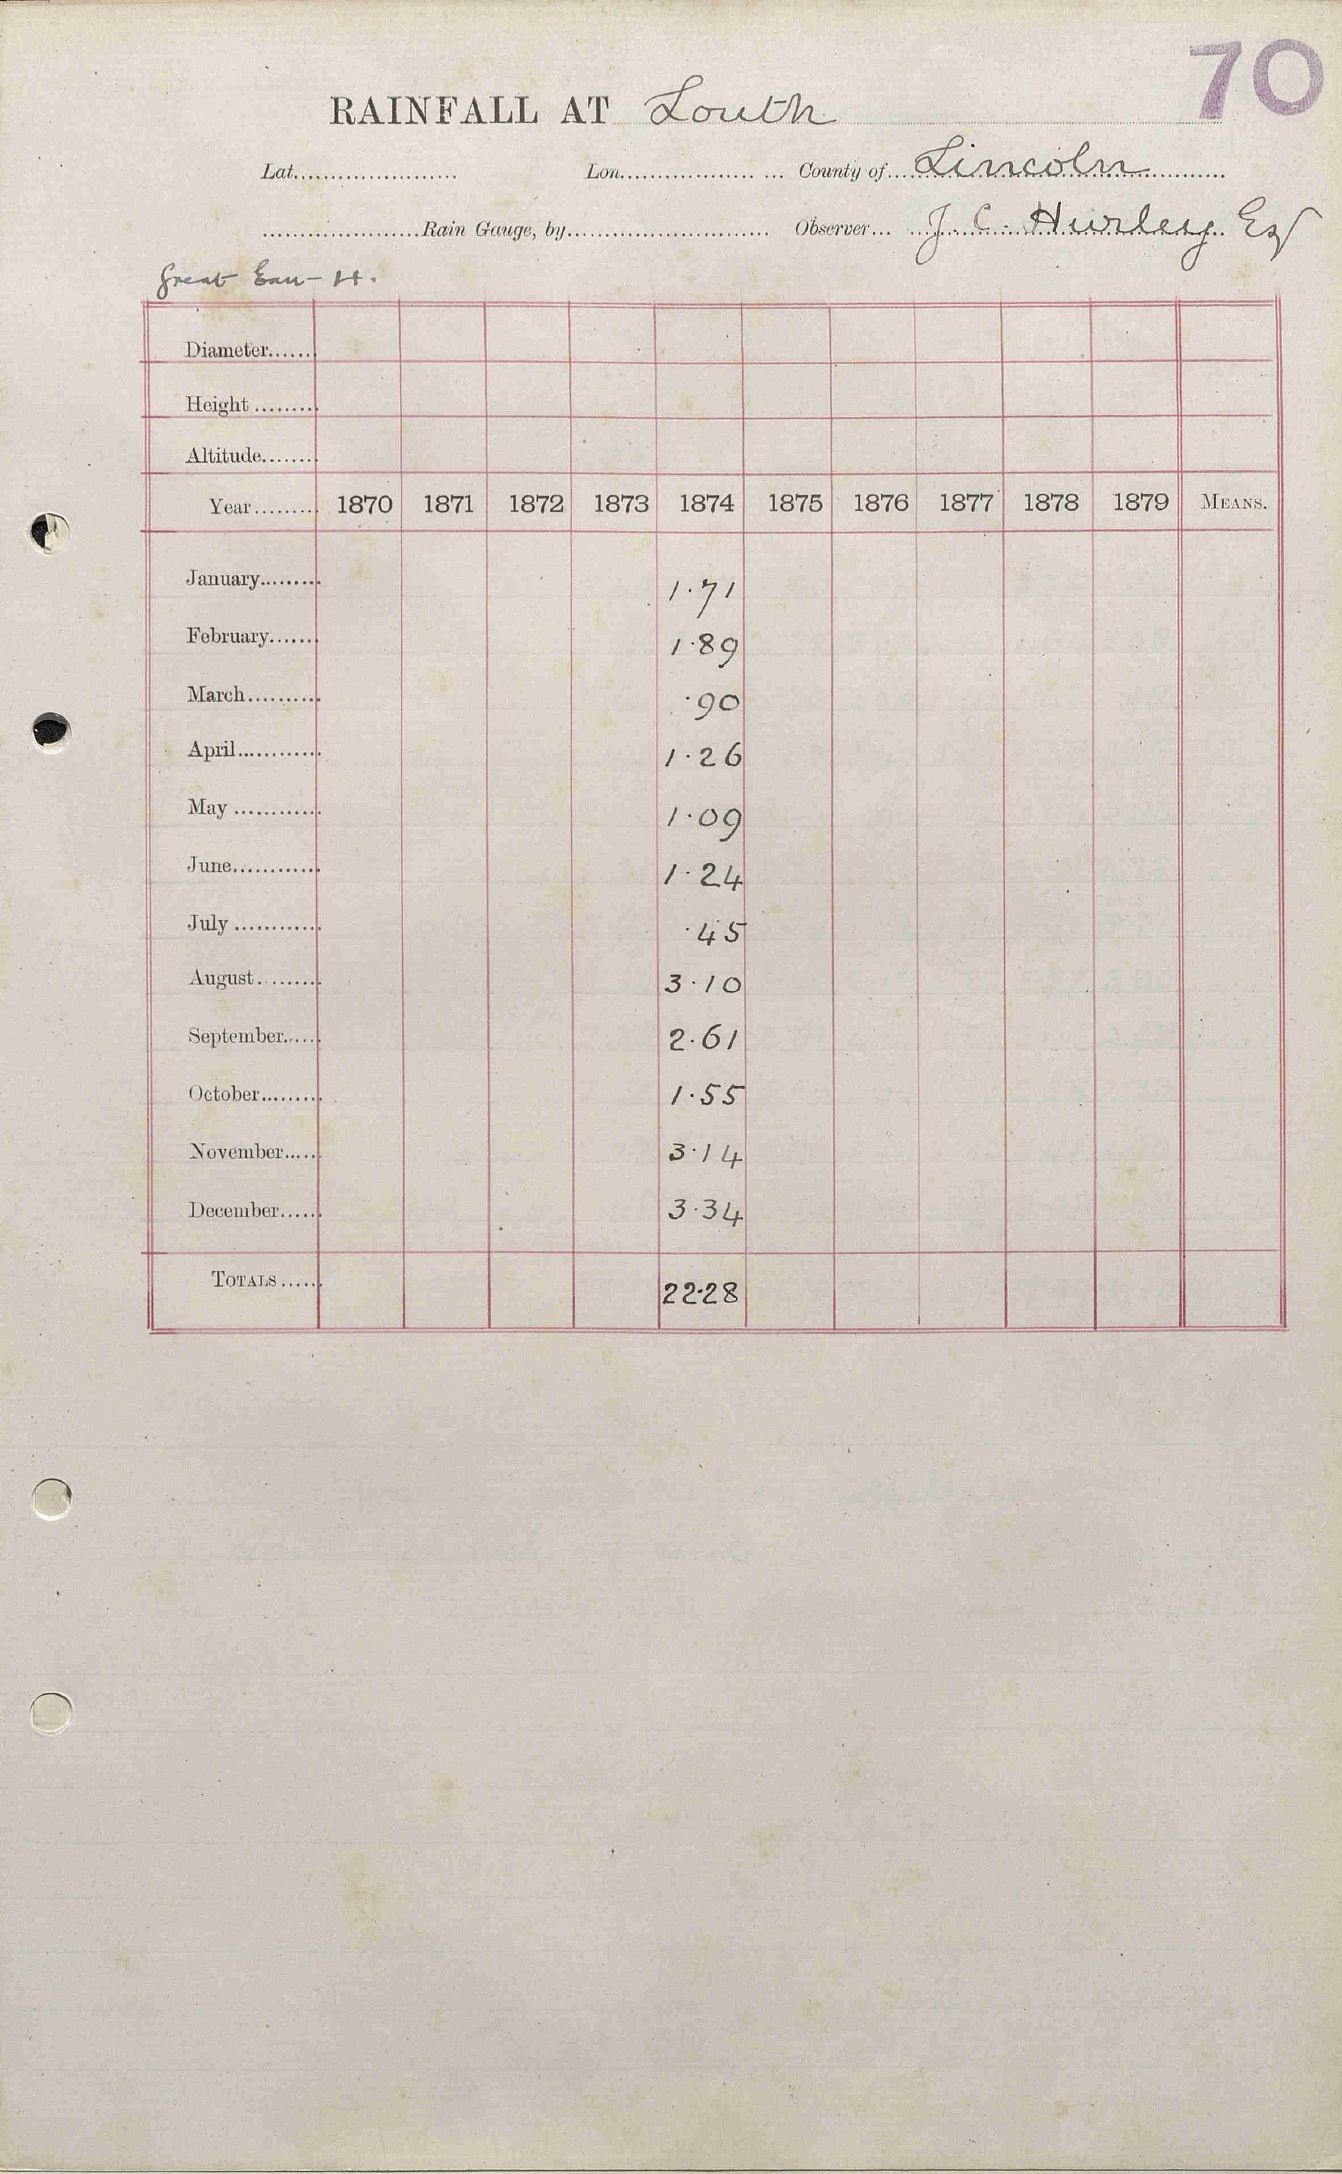 70
RAINFALL AT Louth
Lat..................... Lon..................... County of... Lincoln
.....................Rain Gauge, by........................... Observer... J. C. Hurley Esq
Great Eau - H.
Diameter......
Height .........
Altitude.......
Year........ 1870 1871 1872 1873 1874 1875 1876 1877 1878 1879 MEANS.
January......... 1.71
February....... 1.89
March.......... .90
April............ 1.26
May ............ 1.09
June............ 1.24
July ............ .45
August......... 3.10
September...... 2.61
October......... 1.55
November...... 3.14
December...... 3.34
TOTALS...... 22.28